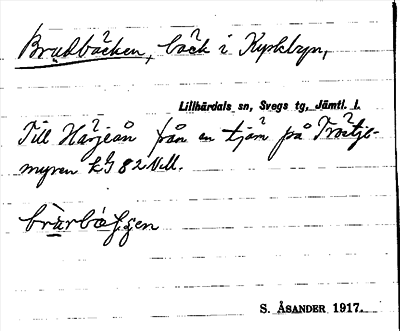 Brudbäcken, bäck i Kyrkbyn,
Lillhärdals sn, Svegs tg, Jämtl. l.
Till Härjeån från en tjärn på Tröstje-
myren LG 82 NM.
brùrbäʃʃen
S. ÅSANDER 1917.